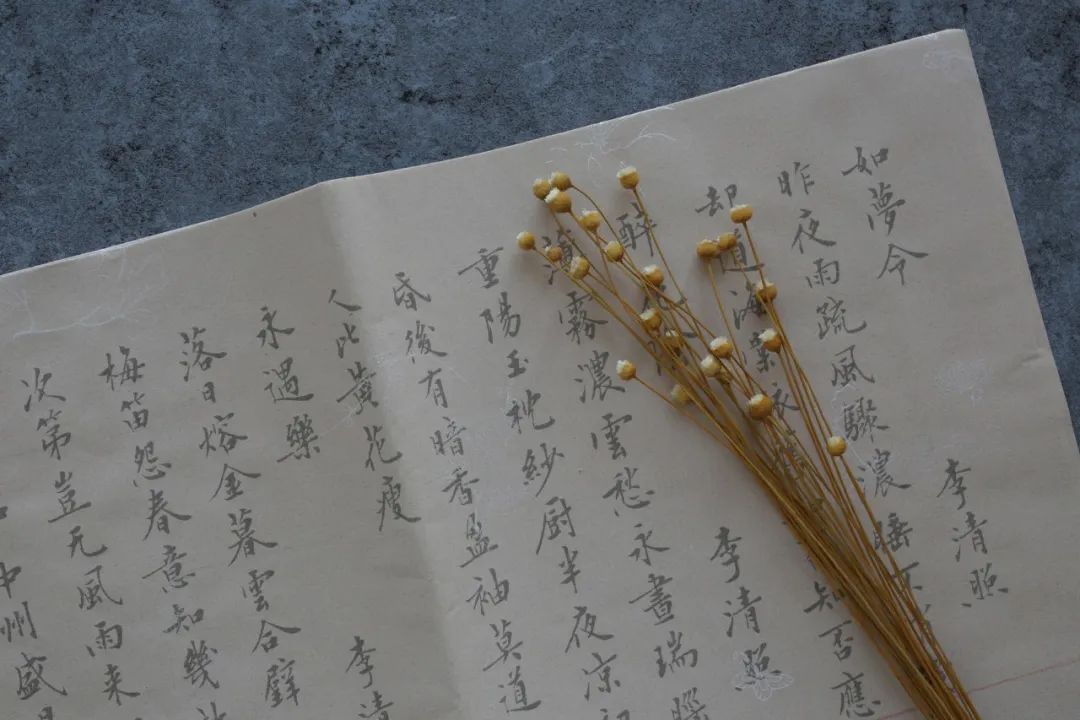 如夢令
李清照
昨夜雨疏風驟濃睡不
却道海棠依
知否應
醉花
李清照
薄霧濃雲愁永晝瑞腦
重陽玉枕紗厨半夜凉初
昏後有暗香盈袖莫道
人比黃花瘦
永遇樂
李清
落日熔金暮雲合璧
梅笛怨春意知幾
次第豈无風雨来
中州盛日